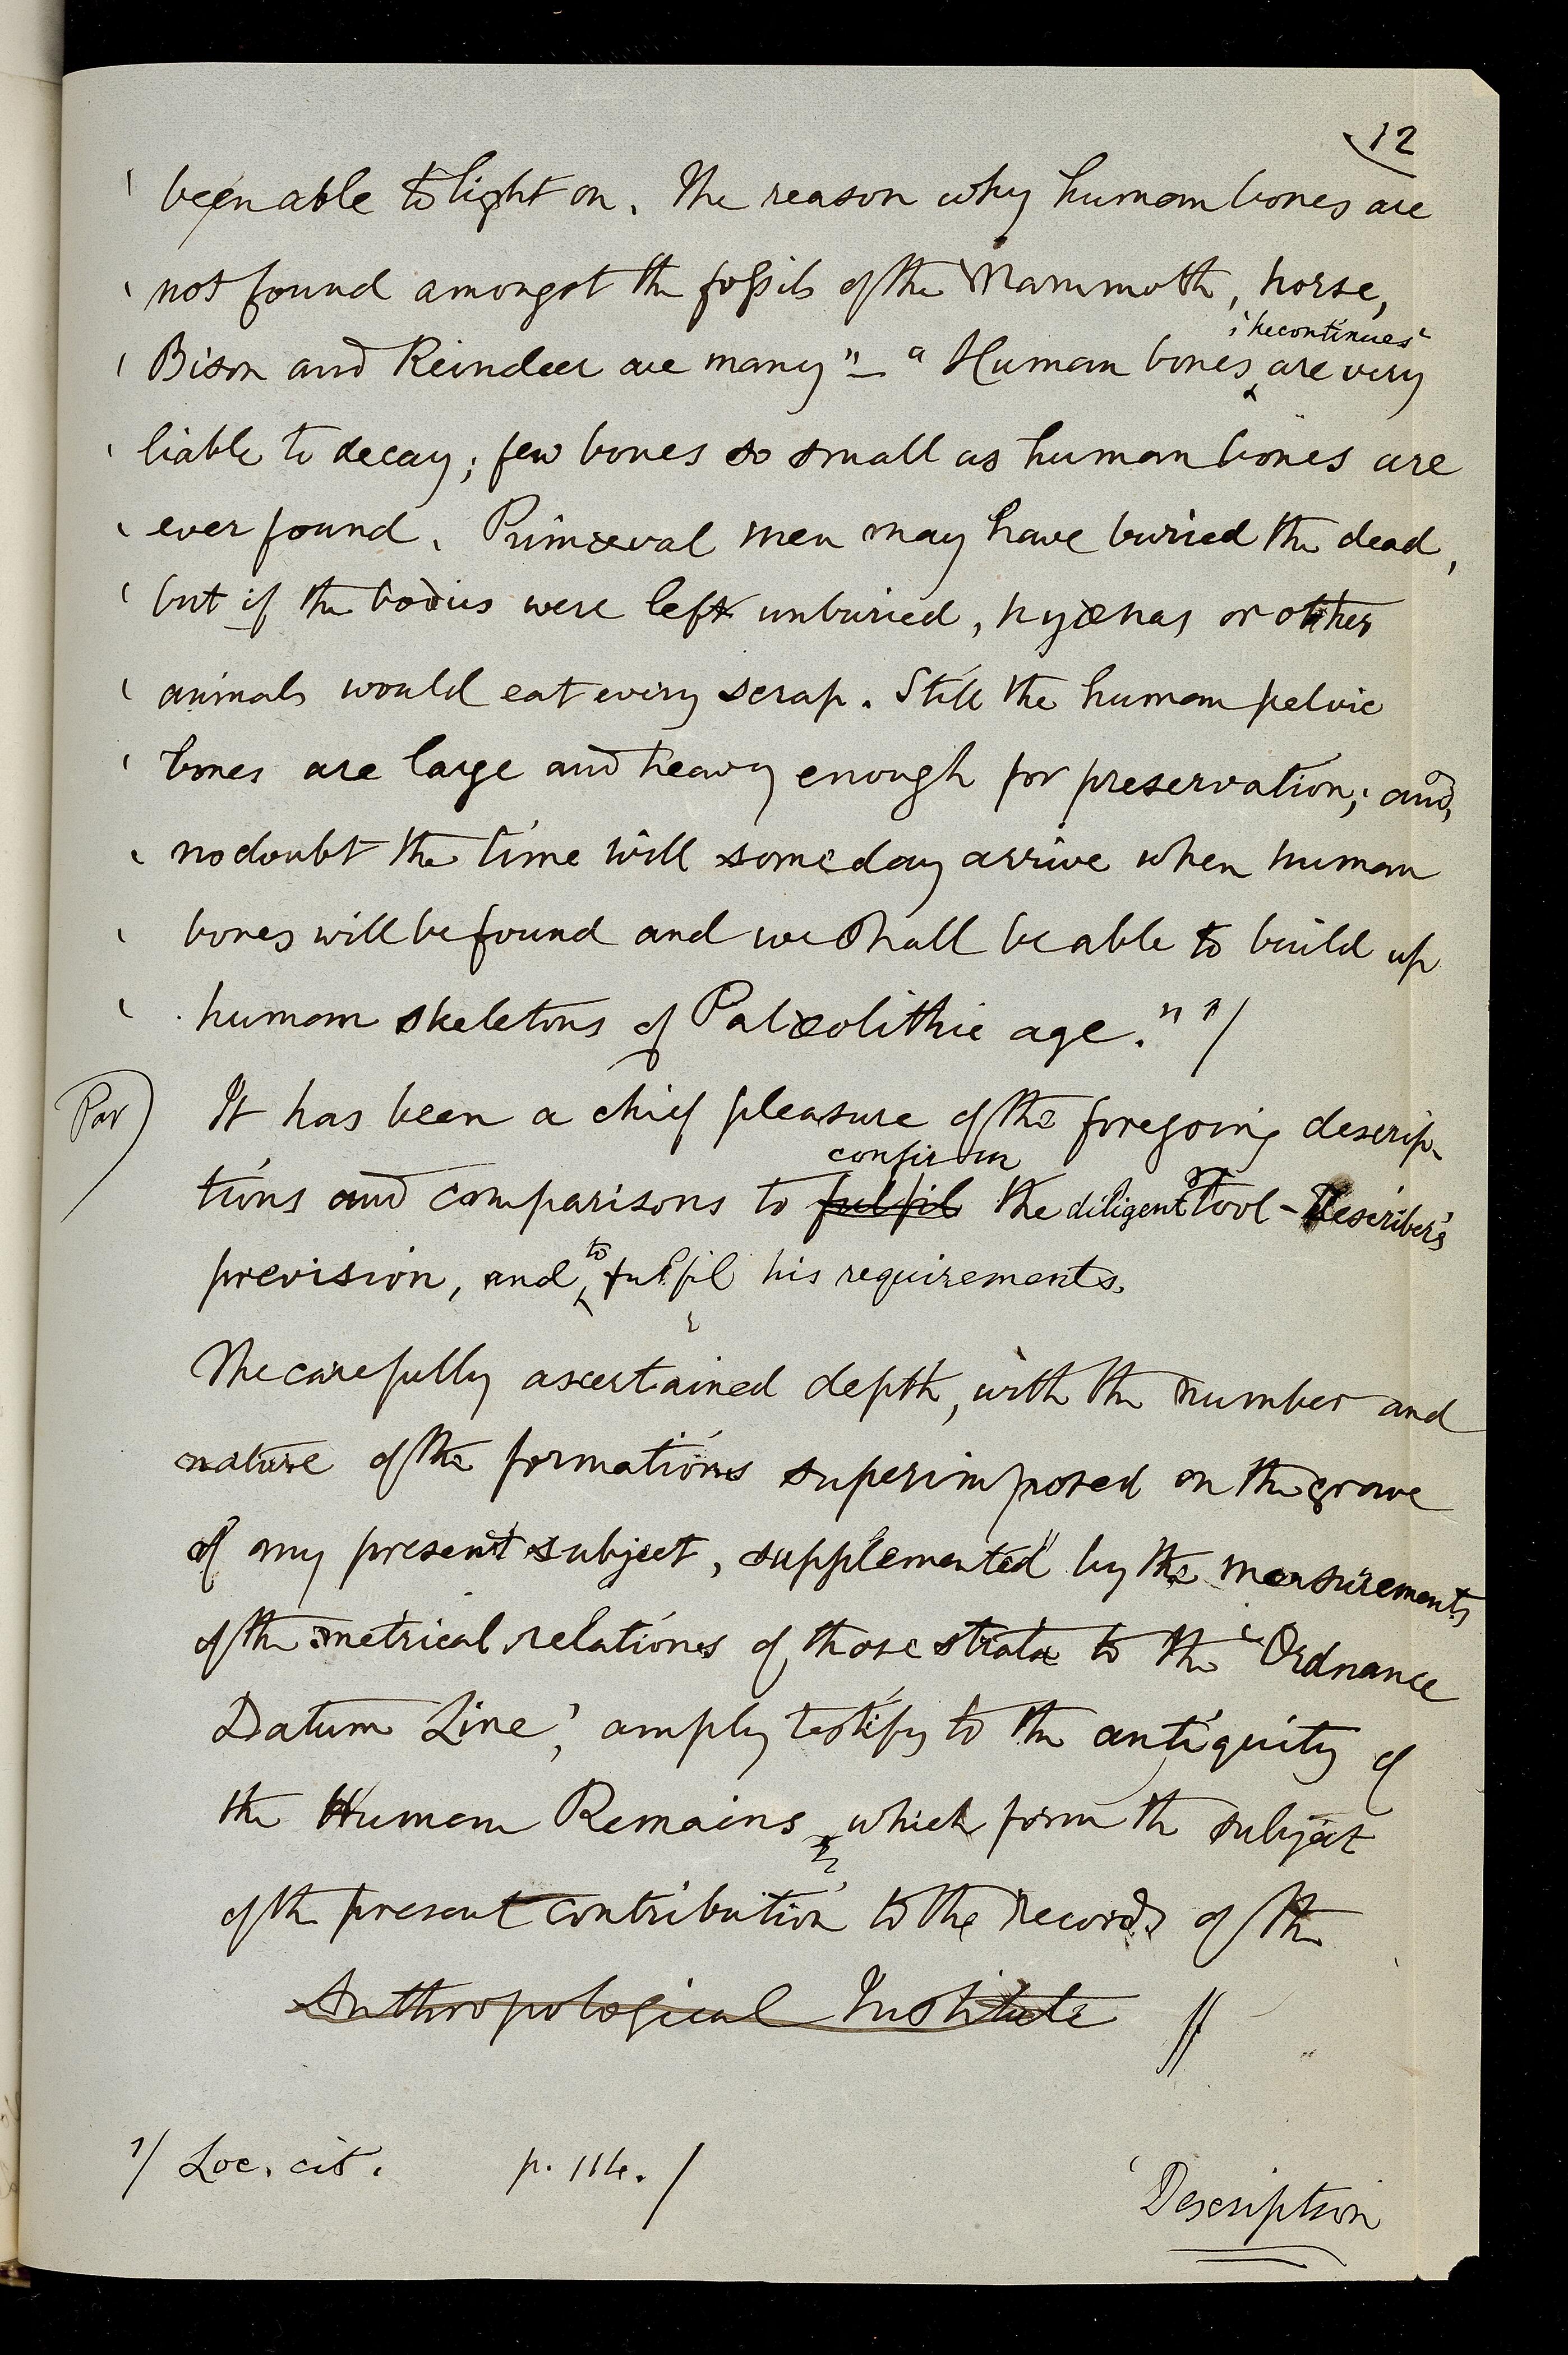 12
been able to light on. The reason why human bones are
not found amongst the fossils of the Mammoth, horse,
'he continues'
Bison and Reindeer are many" — "Human bones, are very
liable to decay; few bones so small as human bones are
ever found. Primæval men may have buried the dead,
but if the bodies were left unburied, hyænas or other
animals would eat every scrap. Still the human pelvic
bones are large and heavy enough for preservation; and,
no doubt the time will some day arrive when human
bones will be found and we shall be able to build up
human skeletons of Palæolithic age." 1/
Par) It has been a chief pleasure of the foregoing descrip-
confirm
tions and comparisons to fulfil the diligent Tool-Describer's
to
prevision, and fulfil his requirements.
The carefully ascertained depth, with the number and
nature of the formations superimposed on the grave
of my present subject, supplemented by the measurements
of the metrical relations of those strata to the 'Ordnance
Datum Line', amply testify to the antiquity of
the Human Remains which form the subject
of the present contribution to the records of the
Anthropological Institute //
1/ Loc. cit. p. 114. /
Description